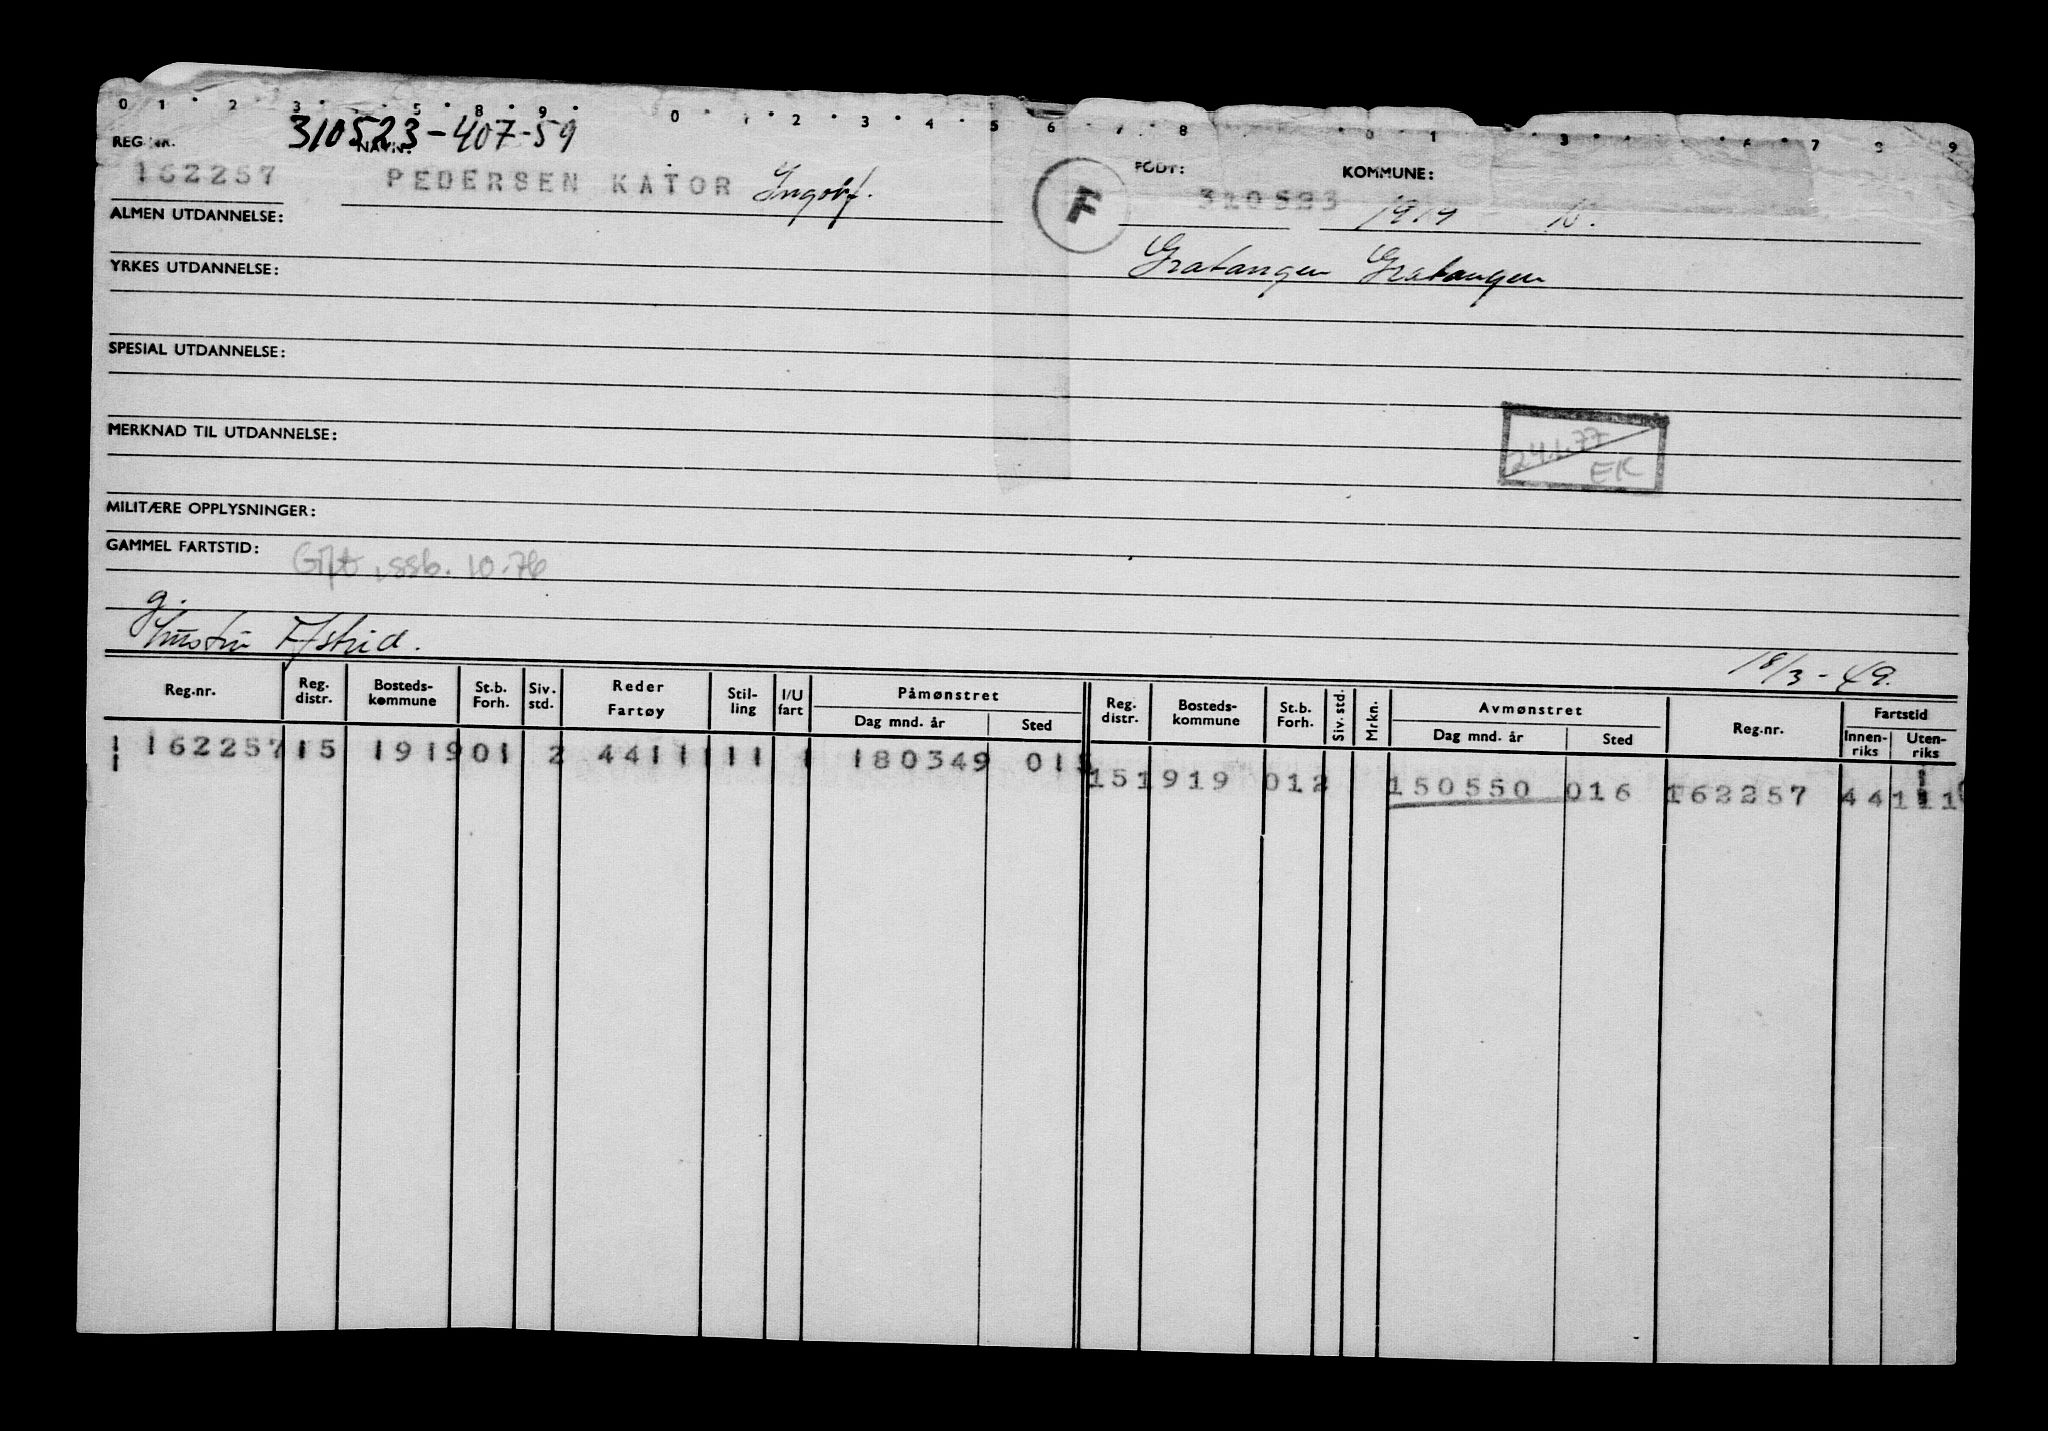 0 1 2 3 5 8 9 0 1 2 3 4 5 6 7 8 0 1 3 4 6 7 8 9
310523-407-59
REG. NR. NAVN: FØDT: KOMMUNE:
162257 PEDERSEN KATOR Ingolf. F 310523 1919 N.
ALMEN UTDANNELSE:
Gratangen Gratangen
YRKES UTDANNELSE:
SPESIAL UTDANNELSE:
24.1.77
EK
MERKNAD TIL UTDANNELSE:
MILITÆRE OPPLYSNINGER:
GAMMEL FARTSTID: Gift, ssb. 10.76
g.
Hustru Astrid.
18/3-49.
Reg.nr. Reg. distr. Bosteds-kommune St.b. Forh. Siv. std. Reder Fartøy Stil-ling I/U fart Påmønstret Dag mnd. år Sted Reg. distr. Bosteds-kommune St.b. Forh. Siv. std. Mrkn. Avmønstret Dag mnd. år Sted Reg.nr. Fartstid Innen-riks Uten-riks
162257 15 1919 01 2 4411 11 1 180349 015
15 1919 012 150550 016 162257 44111